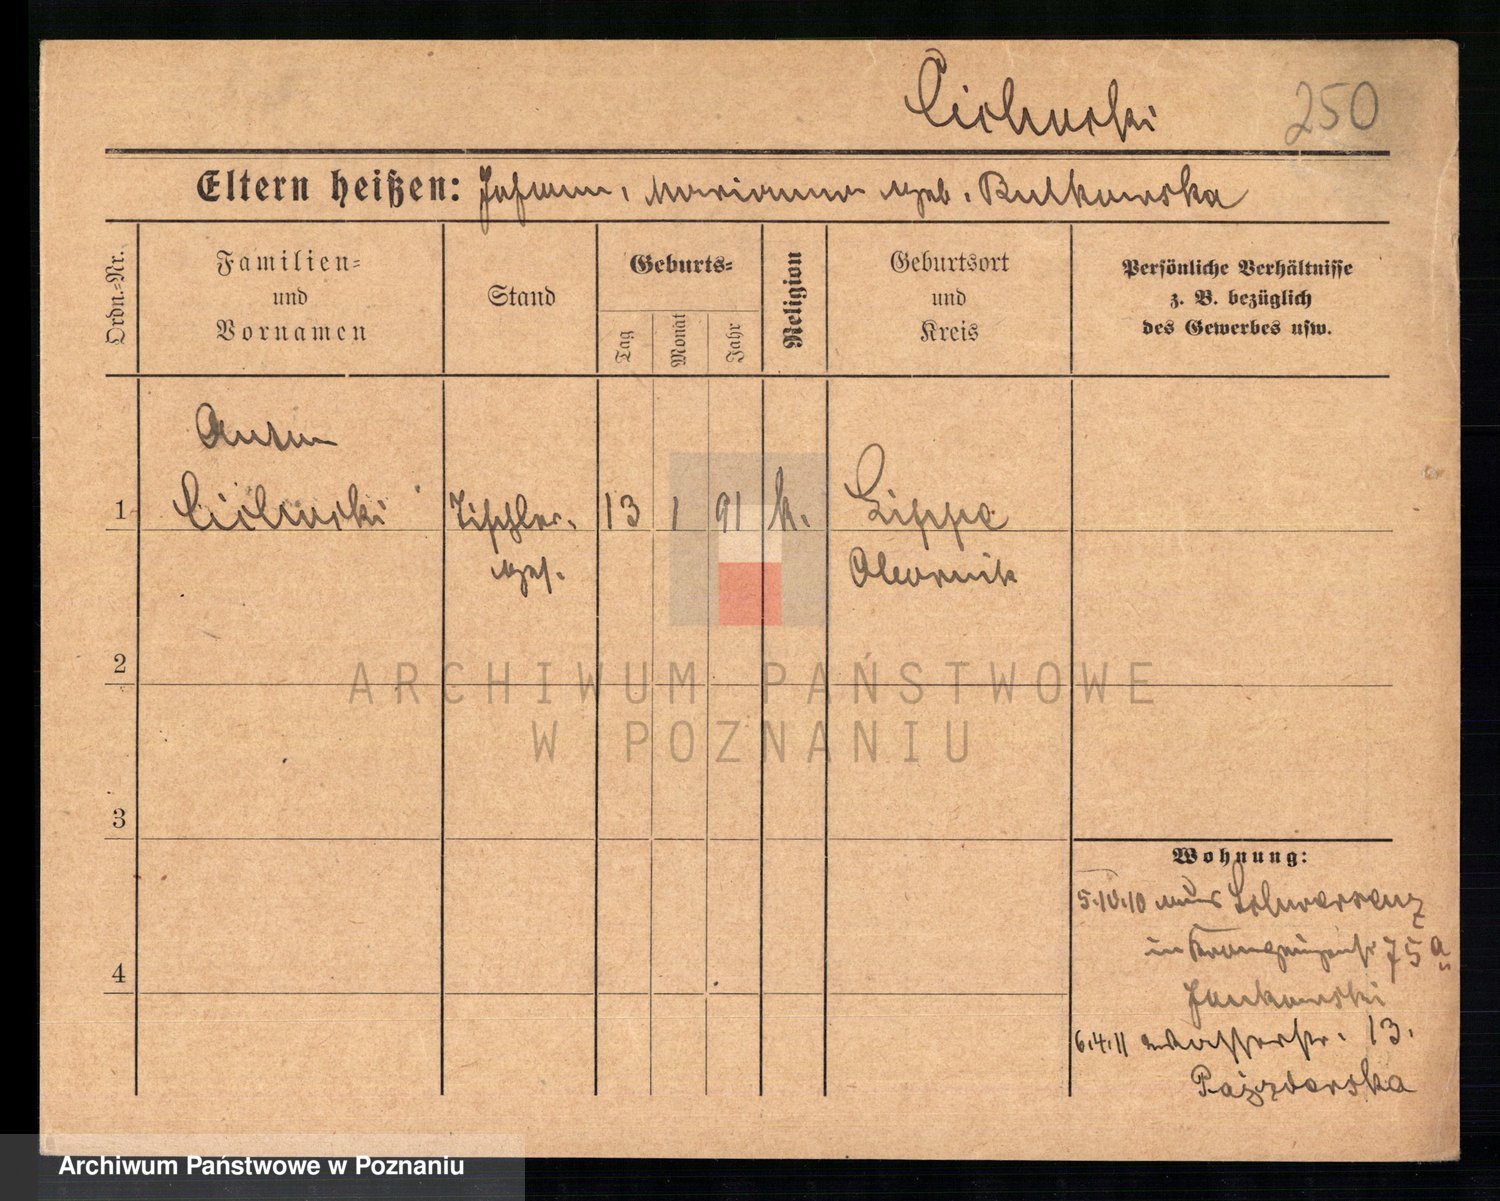 Cichurski 250
Eltern heißen: Johann, Marianna geb. Butkowska
Ordn.-Nr.
Familien-
und
Vornamen
Stand
Geburts-
Tag
Monat
Jahr
Religion
Geburtsort
und
Kreis
Persönliche Verhältnisse
z. B. bezüglich
des Gewerbes usw.
Anton
1 Tischler- 13 1 91 k. Lippa
ges. Obornik
2
3
4
Wohnung:
5.10.10 aus Schwersenz
in 75a
Jankowski
6.4.11 Wasserstr. 13.
Pajzderska
ARCHIWUM PAŃSTWOWE
W POZNANIU
Archiwum Państwowe w Poznaniu